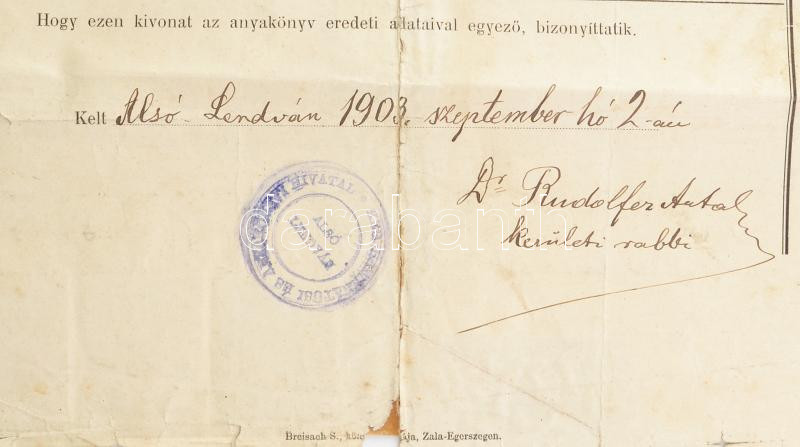 Hogy ezen kivonat az anyakönyv eredeti adataival egyező, bizonyíttatik.
Kelt Alsó-Lendván 1903. szeptember hó 2-án
Dr. Rudolfer Antal
kerületi rabbi
ALSÓ
LENDVAI
HIVATAL
darabanth
Breisach S., Zala-Egerszegen.